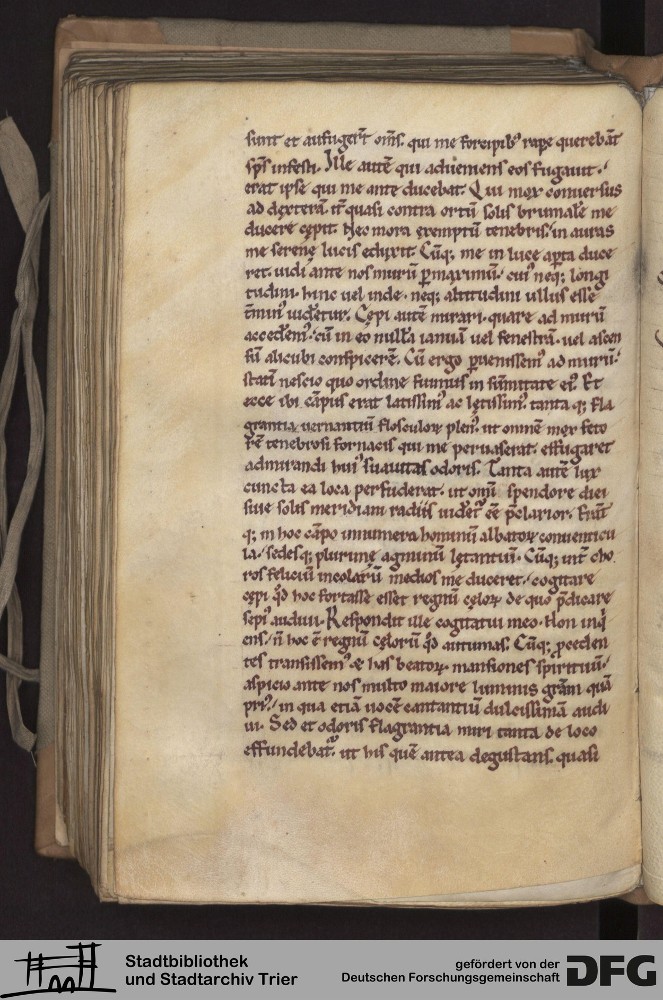 sunt et aufugerẏt om̅s. qui me forcipibꝰ rape querebāt
sp̅s infesti. Ille autē qui adueniens eos fugauit.
erat ipse qui me ante ducebat. Qui mox conuersus
ad dęxterā it̅ quasi contra ortū solis brumalē me
ducere cępit. Nec mora exemptū tenebris. in auras
me serenę lucis eduxit. Cūq; me in luce apta duce
ret. uidi ante nos murū p̅maximū. cuiꝰ neq; longi
tudini. hinc uel inde. neq; altitudini ullus esse
t̅minꝰ uidetur. Cępi autē mirari. quare ad murū
accedemꝰ. cū in eo nullā ianuā uel fenestrā. uel ascen
sū alicubi conspicerē. Cū ergo puenissemꝰ ad murū.
statī nescio quo ordine fuimus in sūmitate eiꝰ. Et
ecce ibi cāpus erat latissimꝰ ac lętissimꝰ. tanta q; fla
grantia uernantiū flosculoꝝ plenꝰ. ut omnē mox feto
rē tenebrosi fornacis qui me peruaserat. effugaret
admirandi huiꝰ suauitas odoris. Tanta autē lux
cuncta ea loca perfuderat. ut omi splendore diei
siue solis meridiani radiis uideretꝰ eē p̅clarior. Erāt
q; in hoc cāpo innumera hominū albatoꝝ conuenticu
la. sedesq; plurimę agminū lętantiū. Cūq; int̅ cho
ros feliciū incolarū medios me duceret. cogitare
cępi. qd̅ hoc fortasse esset regnū cęloꝝ de quo p̅dicare
sępiꝰ audiui. Respondit ille cogitatui meo. Non inq̇
ens. n̄ hoc ē regnū cęlorū qd̅ autumas. Cūq; p̅ceden
tes transissemꝰ & has beatoꝝ mansiones spirituū.
aspicio ante nos multo maiore luminis gr̅am quā
priꝰ. in qua etiā uocē cantantiū dulcissimā audi
ui. Sed et odoris flagrantia miri tanta de loco
effundebat̅. ut his quē antea degustans. quasi
Stadtbibliothek
und Stadtarchiv Trier
gefördert von der
Deutschen Forschungsgemeinschaft
DFG